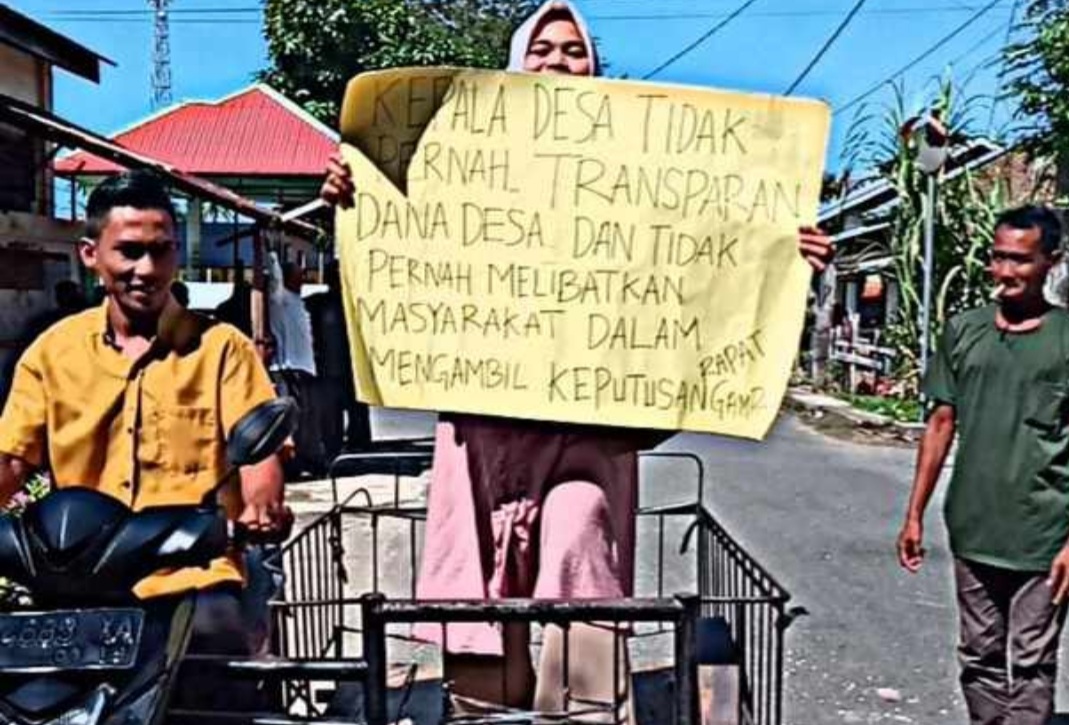 KEPALA DESA TIDAK
PERNAH TRANSPARAN
DANA DESA DAN TIDAK
PERNAH MELIBATKAN
MASYARAKAT DALAM
MENGAMBIL KEPUTUSAN RAPAT